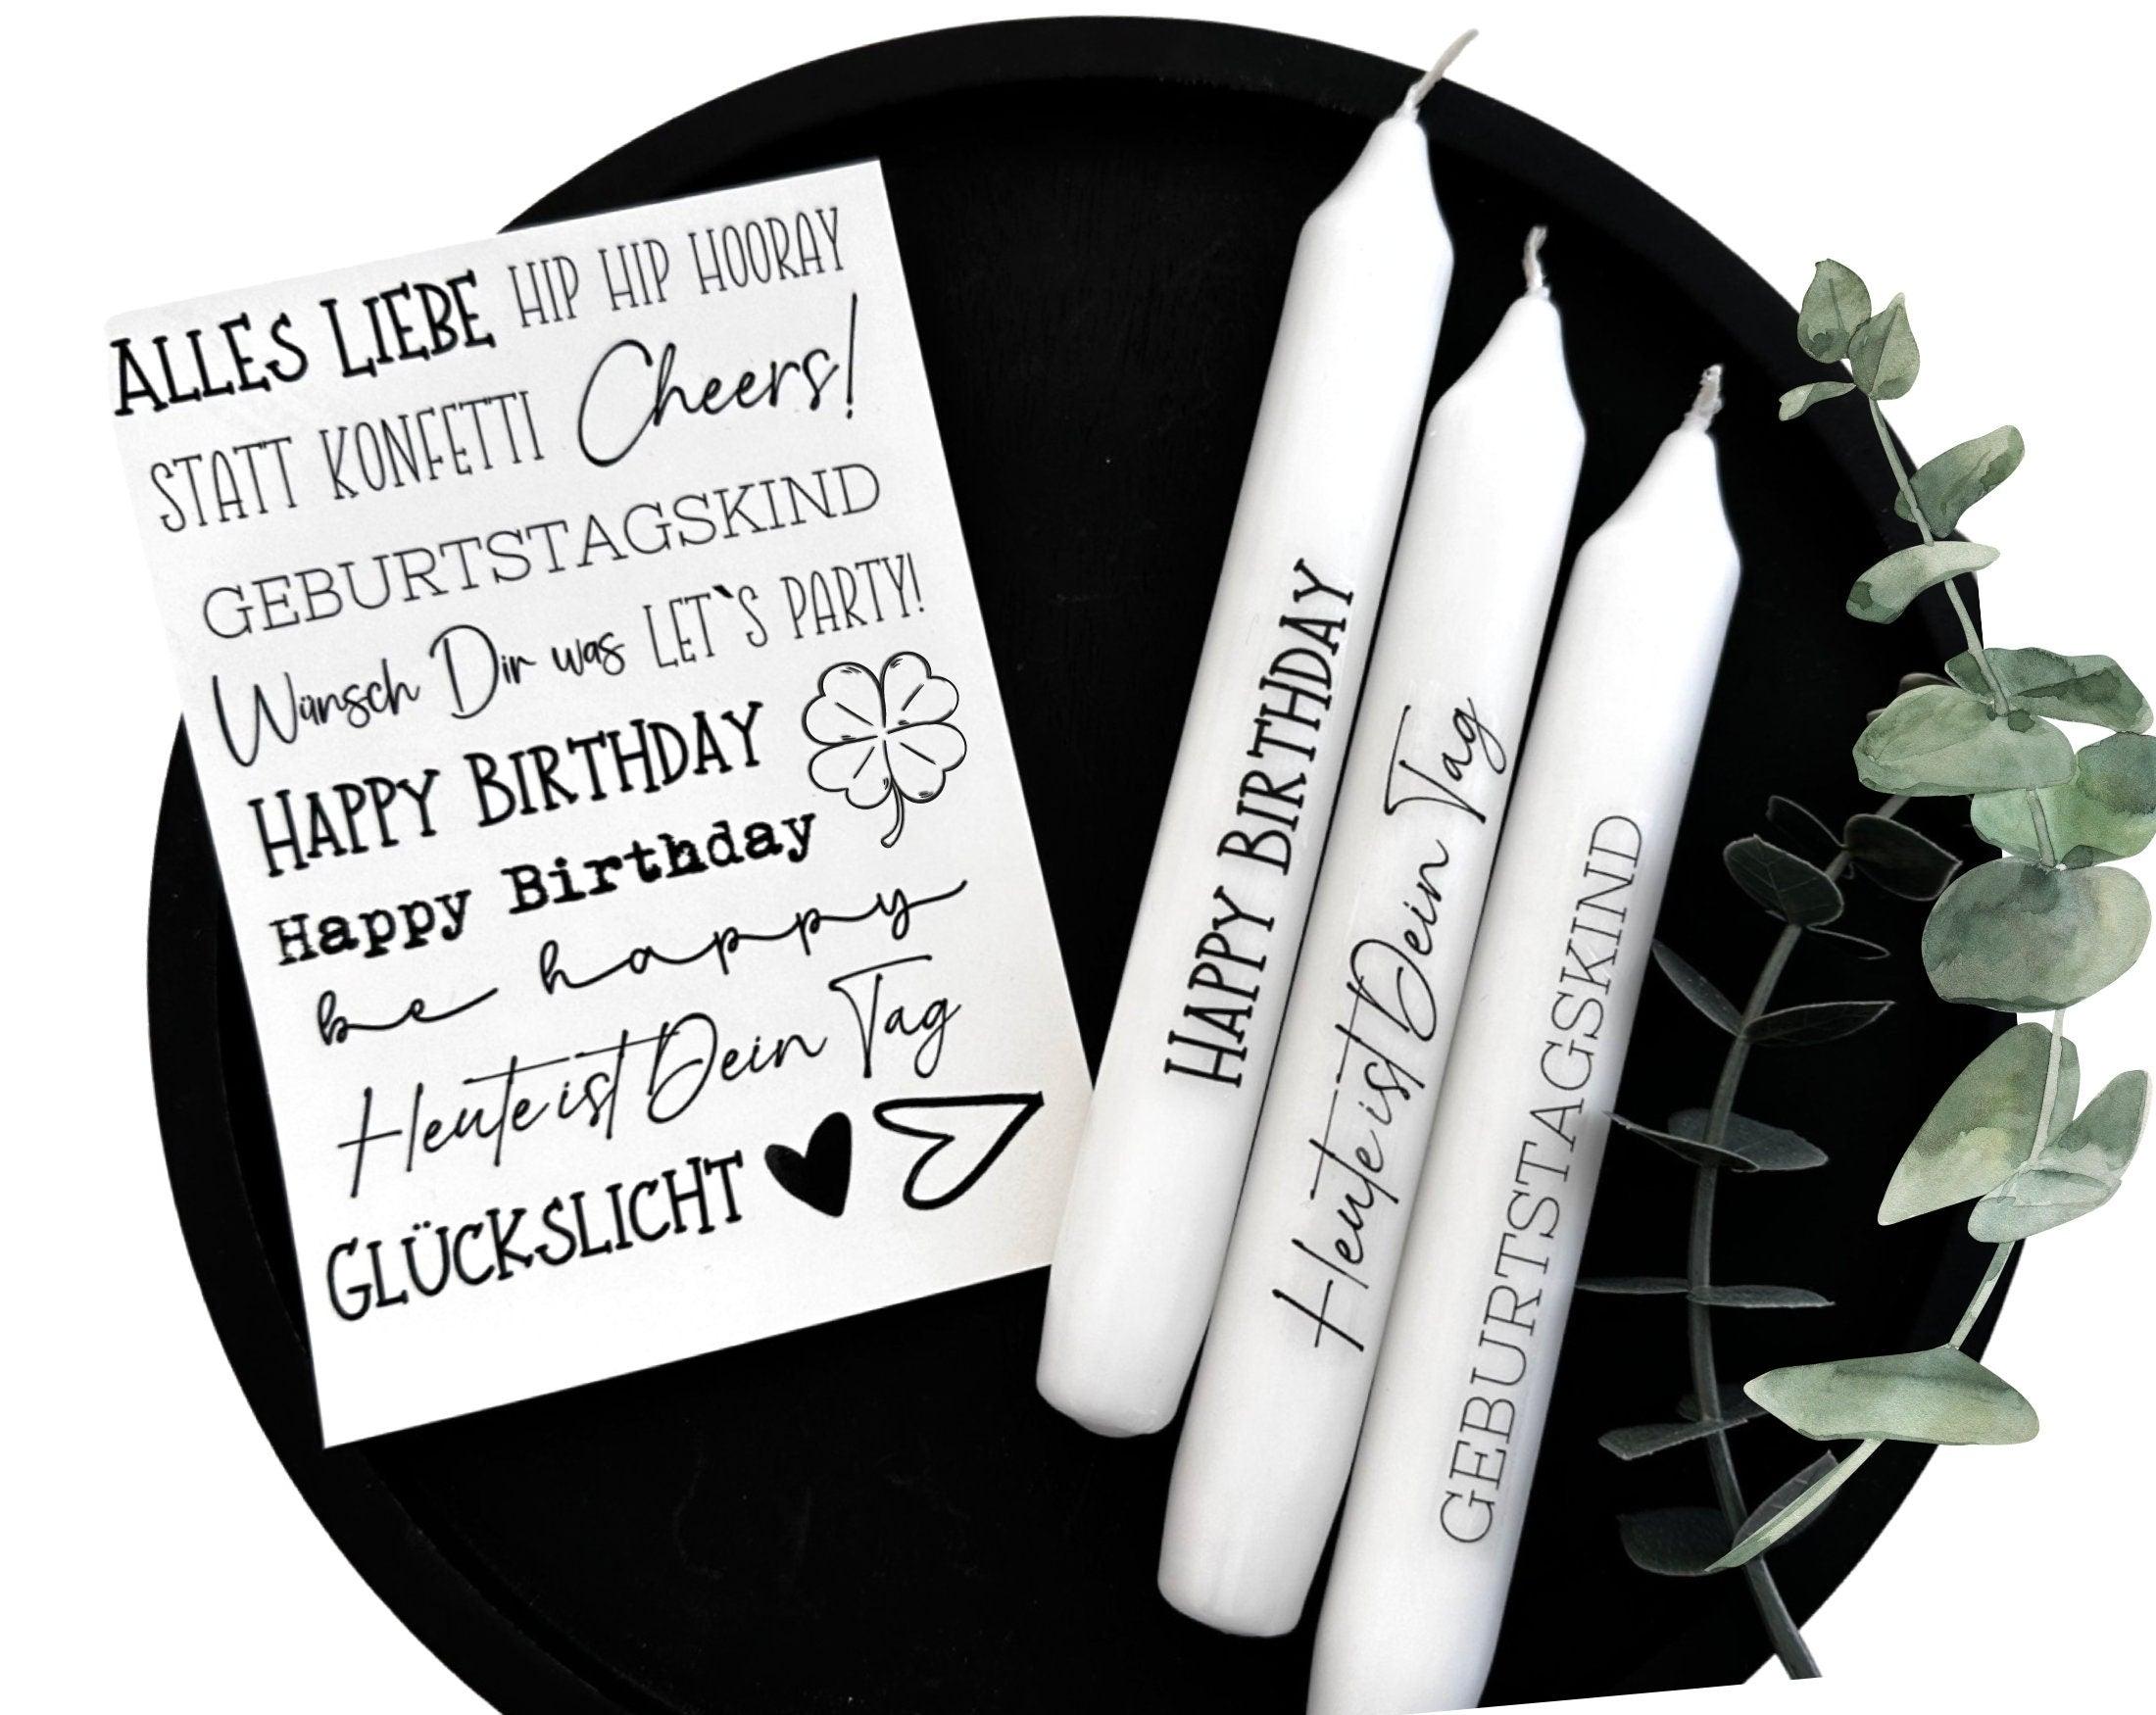 ALLES LIEBE HIP HIP HOORAY
STATT KONFETTI Cheers!
GEBURTSTAGSKIND
Wünsch Dir was LET`S PARTY!
HAPPY BIRTHDAY
Happy Birthday
be happy
Heute ist Dein Tag
GLÜCKSLICHT
HAPPY BIRTHDAY
Heute ist Dein Tag
GEBURTSTAGSKIND